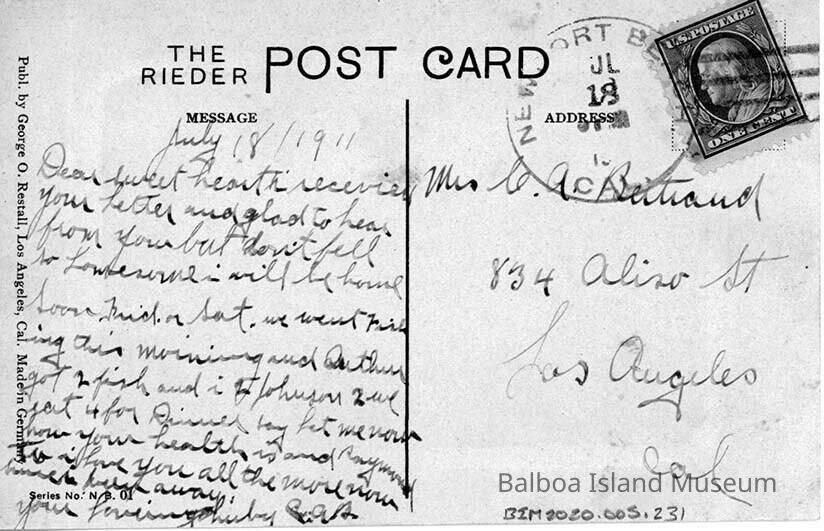 THE
RIEDER POST CARD
NEWPORT BE
JL
18
CAL
U.S. POSTAGE
ONE CENT
MESSAGE
ADDRESS
Publ. by George O. Restall, Los Angeles, Cal. Made in Germany
July 18/1911
Dear sweet hearth recevied
your letter and glad to hear
from your but don't fell
so lonesome i will be home
soon Frid. or Sat. we went Fish
ing this morning and Arthur
got 2 fish and i 2 Johnson 2 we
eat 4 for Dinner say let me now
how your health is and Raymond
i love you all the more now
away.
your loveing huby C.A.B.
Series No. N.B. 01
Mrs C. A. Bertrand
834 Aliso St
Los Angeles
Cal
Balboa Island Museum
BIM2020.005.231